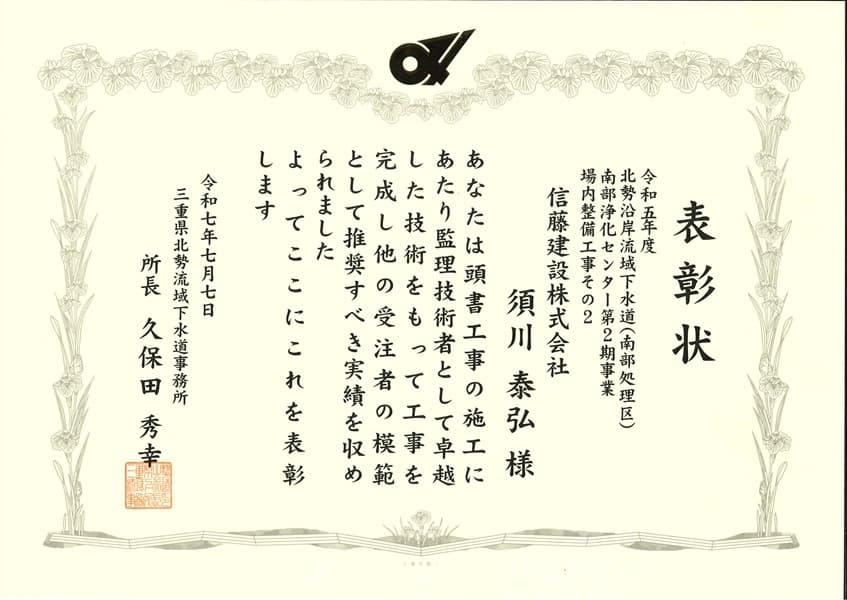 表彰状
令和五年度
北勢沿岸流域下水道(南部処理区)
南部浄化センター第2期事業
場内整備工事その2
信藤建設株式会社
須川 泰弘 様
あなたは頭書工事の施工に
あたり監理技術者として卓越
した技術をもって工事を
完成し他の受注者の模範
として推奨すべき実績を収め
られました
よってここにこれを表彰
します
令和七年七月七日
三重県北勢流域下水道事務所
所長 久保田 秀幸